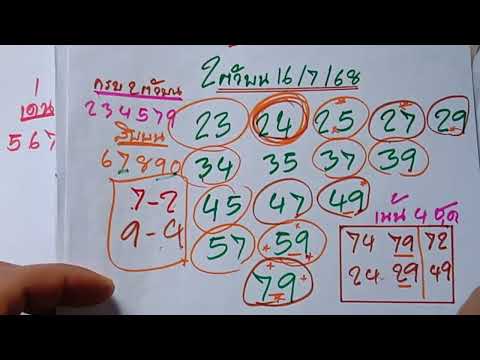 2 ตัวบน 16/7/68
1
เด่น
567
ครบ 2 ตัวบน
234579
23 24 25 27 29
รูดบน
67890
34 35 37 39
7-2
9-4
45 47 49
57 59
79
เน้น 4 ชุด
74 79 72
24 29 49